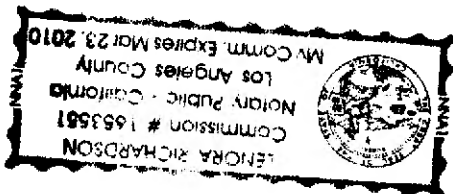 LENORA RICHARDSON
Commission # 1653561
Notary Public - California
Los Angeles County
My Comm. Expires Mar 23, 2010